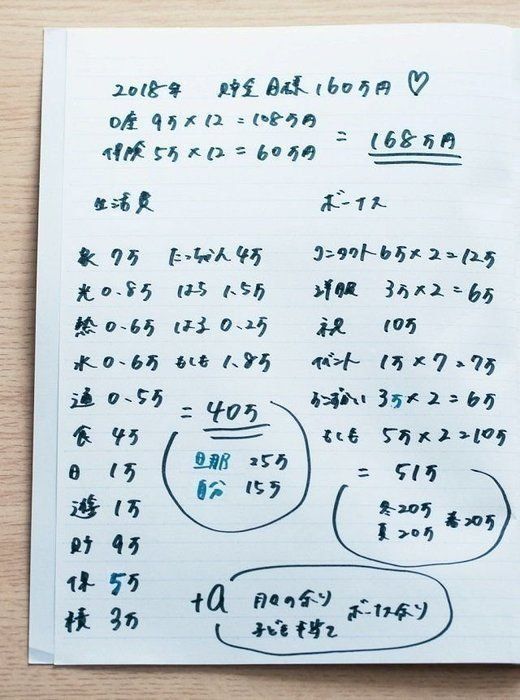 2018年 貯金目標 160万円 ♡
口座 9万×12 = 108万円
保険 5万×12 = 60万円
= 168万円
生活費
家 7万 たっちゃん 4万
光 0.8万 はら 1.5万
熱 0.6万 はる 0.2万
水 0.6万 もしも 1.8万
通 0.5万
食 4万
日 1万
遊 1万
貯 9万
保 5万
積 3万
= 40万
旦那 25万
自分 15万
ボーナス
コンタクト 6万×2=12万
洋服 3万×2=6万
祝 10万
イベント 1万×7=7万
おこづかい 3万×2=6万
もしも 5万×2=10万
= 51万
冬20万
夏20万
春20万
+α
月々の余り ボーナス余り
子ども手当て